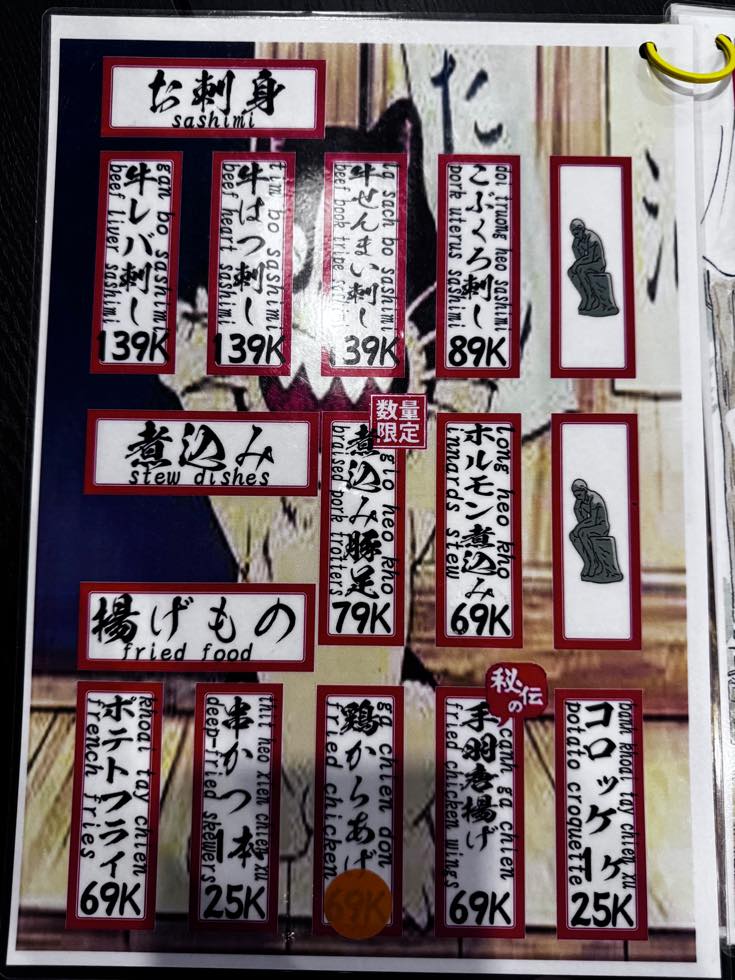 お刺身
sashimi
牛レバ刺し
gan bo sashimi
beef liver sashimi
139K
牛はつ刺し
tim bo sashimi
beef heart sashimi
139K
牛せんまい刺し
la sach bo sashimi
beef book tripe sashimi
139K
こぶくろ刺し
doi truong heo sashimi
pork uterus sashimi
89K
煮込み
stew dishes
数量
限定
煮込み豚足
gio heo kho
braised pork trotters
79K
ホルモン煮込み
long heo kho
innards stew
69K
揚げもの
fried food
ポテトフライ
khoai tay chien
french fries
69K
串かつ1本
thit heo xien chien xu
deep-fried skewers
25K
鶏からあげ
ga chien don
fried chicken
69K
秘伝の
手羽唐揚げ
canh ga chien
fried chicken wings
69K
コロッケ1ケ
banh khoai tay chien xu
potato croquette
25K
た